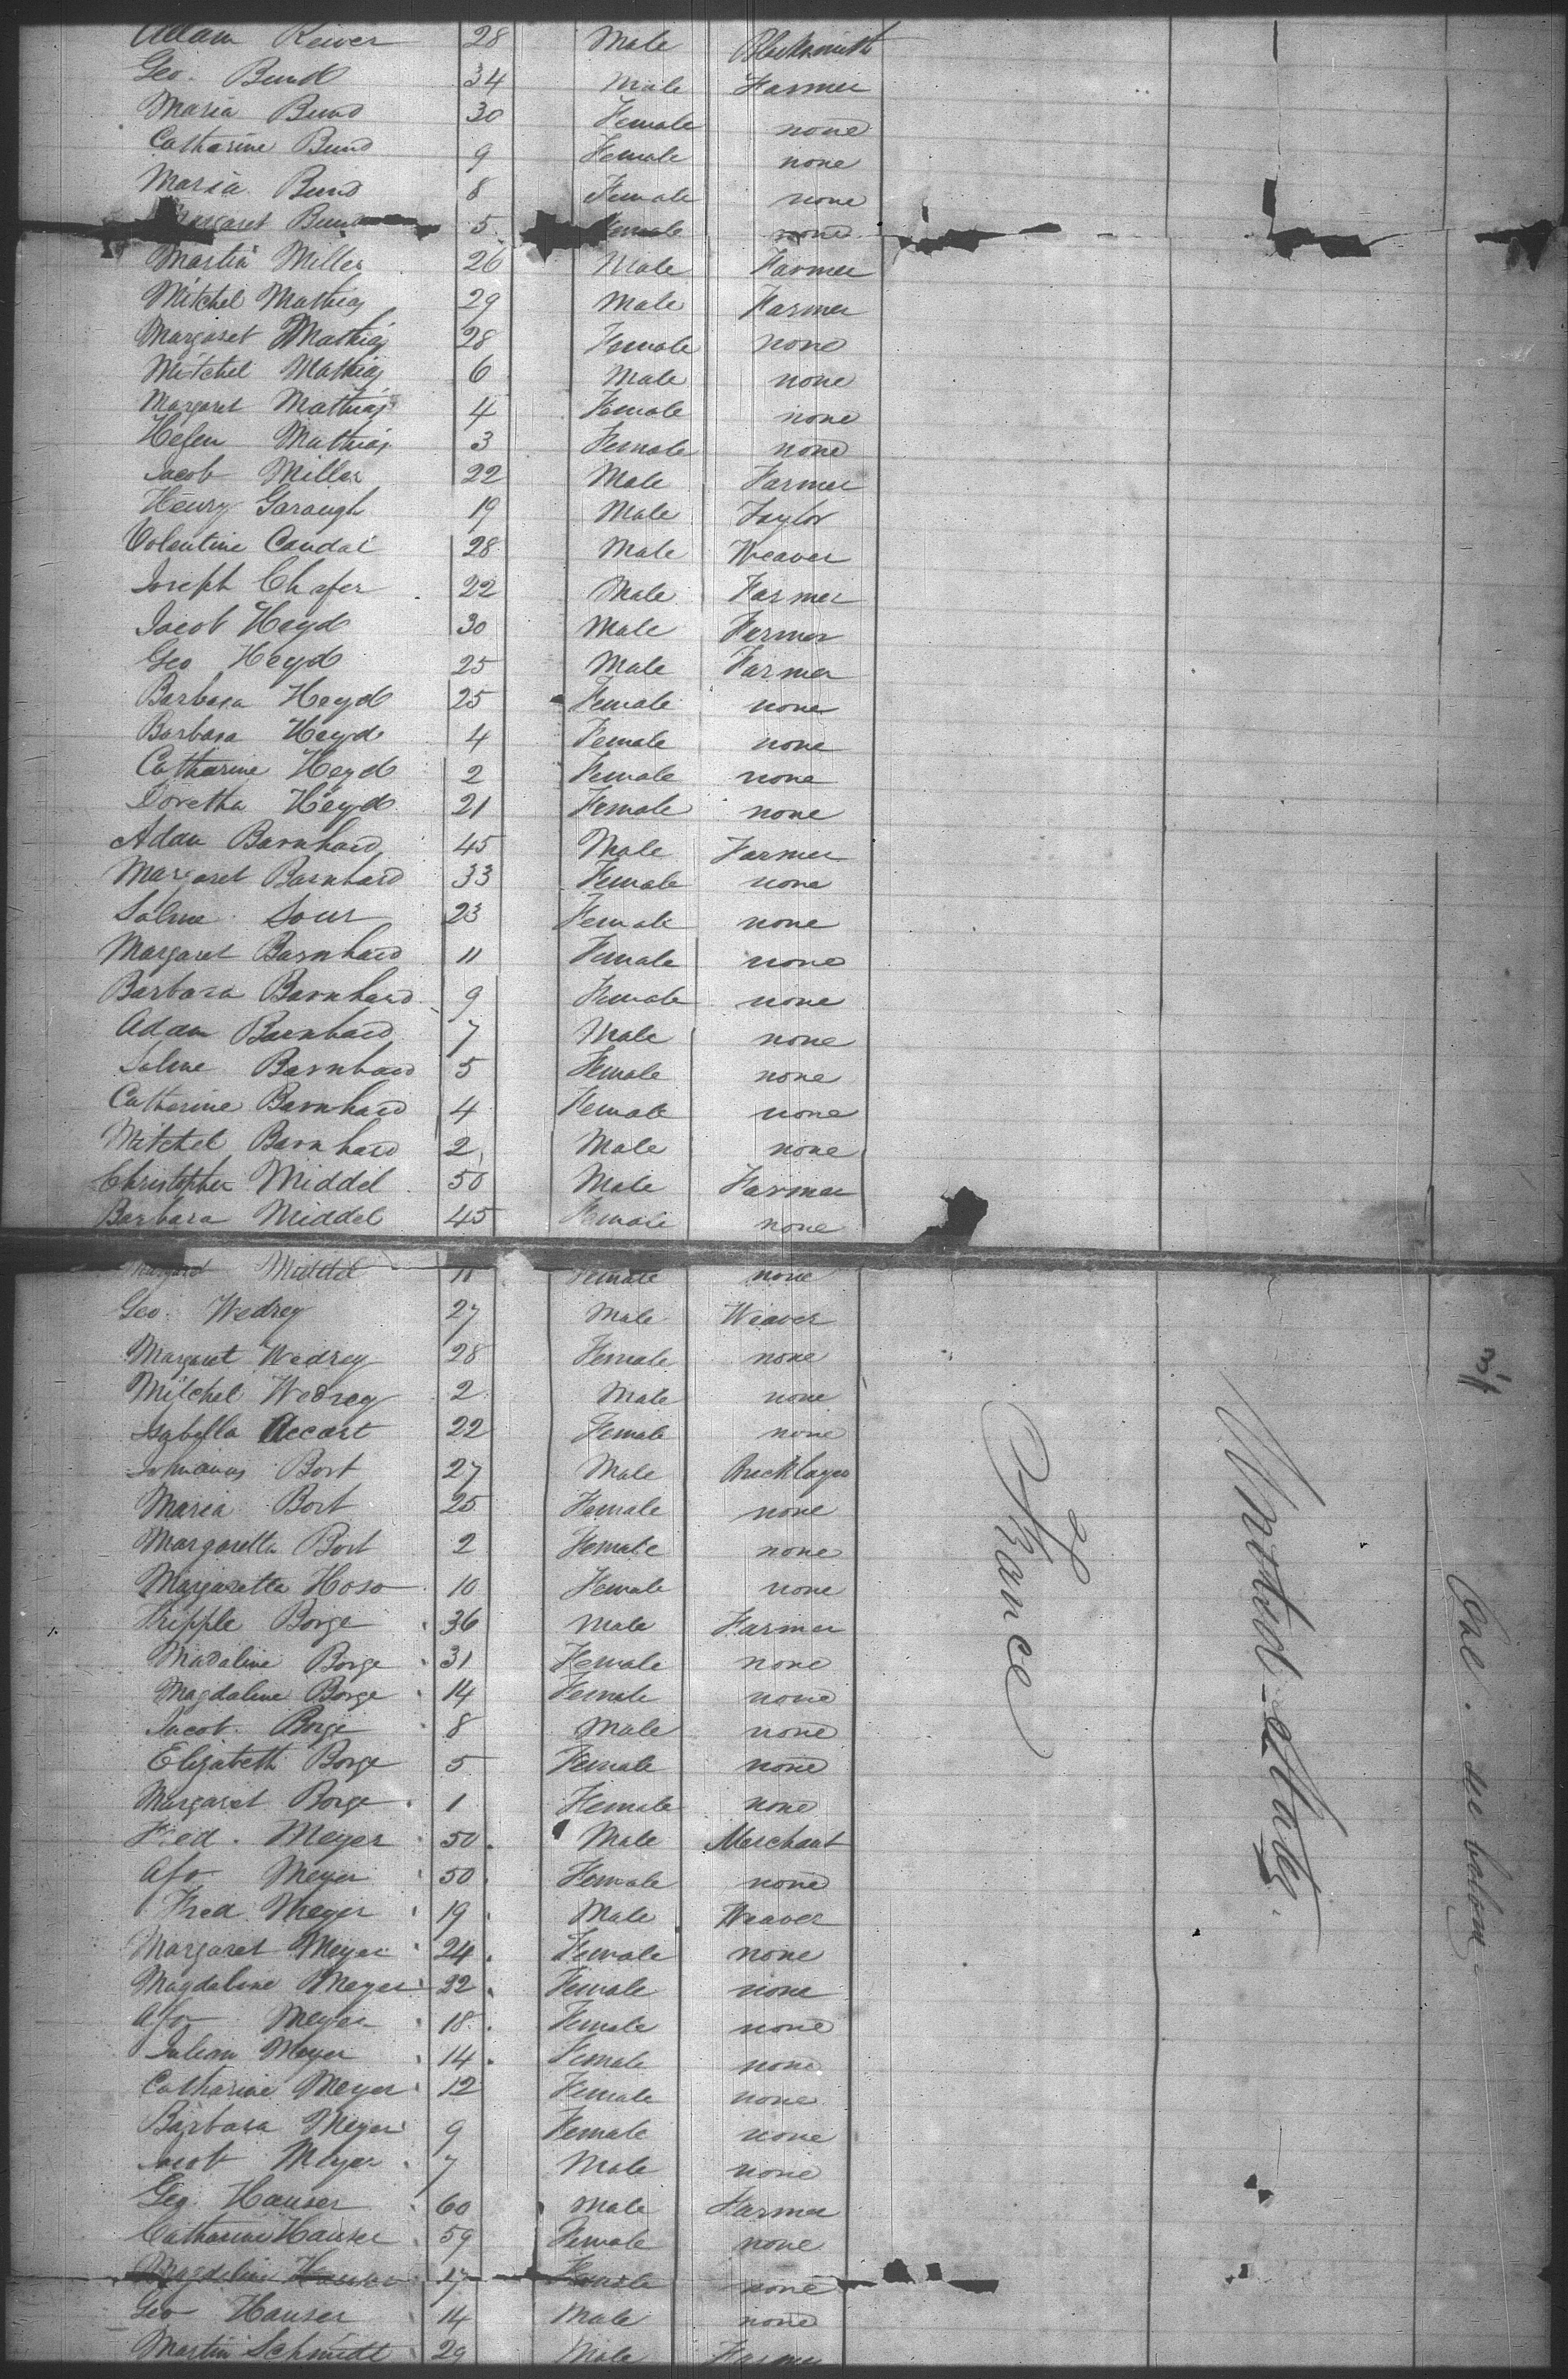 Adam Reiver 28 Male Blacksmith
Geo. Bund 34 Male Farmer
Maria Bund 30 Female none
Catharine Bund 9 Female none
Maria Bund 8 Female none
Margaret Bund 5 Female none
Martin Miller 26 Male Farmer
Mitchel Mathias 29 Male Farmer
Margaret Mathias 28 Female none
Mitchel Mathias 6 Male none
Margaret Mathias 4 Female none
Helen Mathias 3 Female none
Jacob Miller 22 Male Farmer
Henry Garaugh 19 Male Taylor
Volentine Caudal 28 Male Weaver
Joseph Chafer 22 Male Farmer
Jacob Heyd 30 Male Farmer
Geo Heyd 25 Male Farmer
Barbara Heyd 25 Female none
Barbara Heyd 4 Female none
Catharine Heyd 2 Female none
Doretha Heyd 21 Female none
Adam Barnhard 45 Male Farmer
Margaret Barnhard 33 Female none
Salme Sour 23 Female none
Margaret Barnhard 11 Female none
Barbara Barnhard 9 Female none
Adam Barnhard 7 Male none
Salme Barnhard 5 Female none
Catharine Barnhard 4 Female none
Mitchel Barnhard 2 Male none
Christopher Middel 50 Male Farmer
Barbara Middel 45 Female none
Margaret Middel 11 Female none
Geo. Wedrey 27 Male Weaver
Margaret Wedrey 28 Female none
Mitchel Wedrey 2 Male none
Isabella Accart 22 Female none
Bort 27 Male Bricklayer
Maria Bort 25 Female none
Margaretta Bort 2 Female none
Margaretta Hoso 10 Female none
Tripple Borge 36 Male Farmer
Madaline Borge 31 Female none
Magdaline Borge 14 Female none
Jacob Borge 8 Male none
Elizabeth Borge 5 Female none
Margaret Borge 1 Female none
Fred. Meyer 50 Male Merchant
Afo Meyer 50 Female none
Fred Meyer 19 Male Weaver
Margaret Meyer 24 Female none
Magdaline Meyer 22 Female none
Afo Meyer 18 Female none
Julian Meyer 14 Female none
Catharine Meyer 12 Female none
Barbara Meyer 9 Female none
Jacob Meyer 7 Male none
Geo. Hauser 60 Male Farmer
Catharine Hauser 59 Female none
Magdeline Hauser 17 Female none
Geo Hauser 14 Male none
Martin Schmidt 29 Male Farmer
of France
United States.